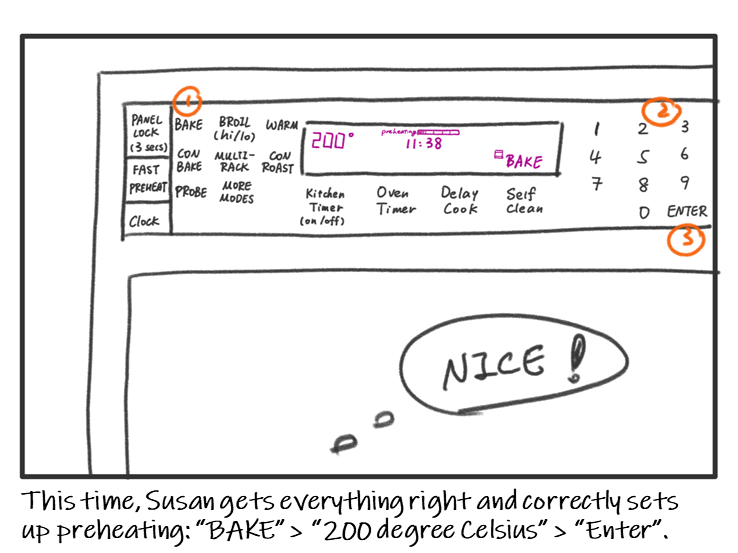 PANEL
LOCK
(3 secs)
FAST
PREHEAT
Clock
1
BAKE BROIL WARM
(hi/lo)
CON MULTI- CON
BAKE RACK ROAST
PROBE MORE
MODES
200° preheating
11:38
BAKE
Kitchen Oven Delay Self
Timer Timer Cook Clean
(on/off)
2
1 2 3
4 5 6
7 8 9
0 ENTER
3
NICE!
This time, Susan gets everything right and correctly sets
up preheating: "BAKE" > "200 degree Celsius" > "Enter".